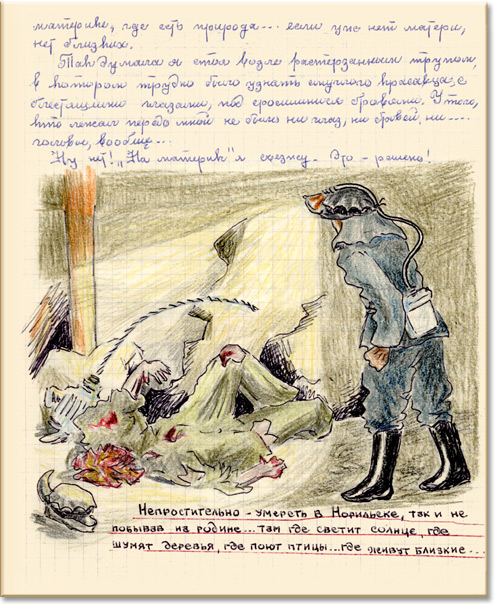 материке, где есть природа... если уже нет матери,
нет близких.
Так думала я стоя возле растерзанным трупом,
в котором трудно было узнать смуглого красавца, с
блестящими глазами, под сросшимися бровями. У того,
кто лежал передо мной не было ни глаз, ни бровей, ни....
головы, вообще...
Ну нет! „На материк" я съезжу. Это – решено!
Непростительно – умереть в Норильске, так и не
побывав на родине... там где светит солнце, где
шумят деревья, где поют птицы... где живут близкие...